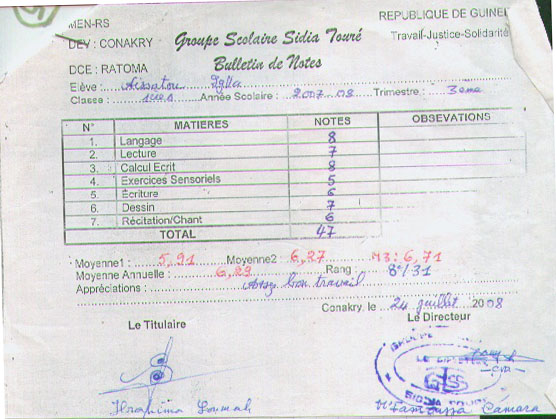 MEN-RS REPUBLIQUE DE GUINEE
DEV : CONAKRY Groupe Scolaire Sidia Touré Travail-Justice-Solidarité
DCE : RATOMA Bulletin de Notes
Elève : Aïssatou Sylla
Classe : Année Scolaire : 2007 08 Trimestre : 3ème
N° MATIERES NOTES OBSEVATIONS
1. Langage 8
2. Lecture 7
3. Calcul Ecrit 8
4. Exercices Sensoriels 5
5. Écriture 6
6. Dessin 7
7. Récitation/Chant 6
TOTAL 47
Moyenne1 : 5,91 Moyenne2 6,27 M3: 6,71
Moyenne Annuelle : 6,29 Rang 8e/31
Appréciations : Assez bon travail
Conakry, le 24 juillet 2008
Le Titulaire Le Directeur
LE DIRECTEUR
GSS
SIDIA TOURE
Ibrahima Soumah Camara